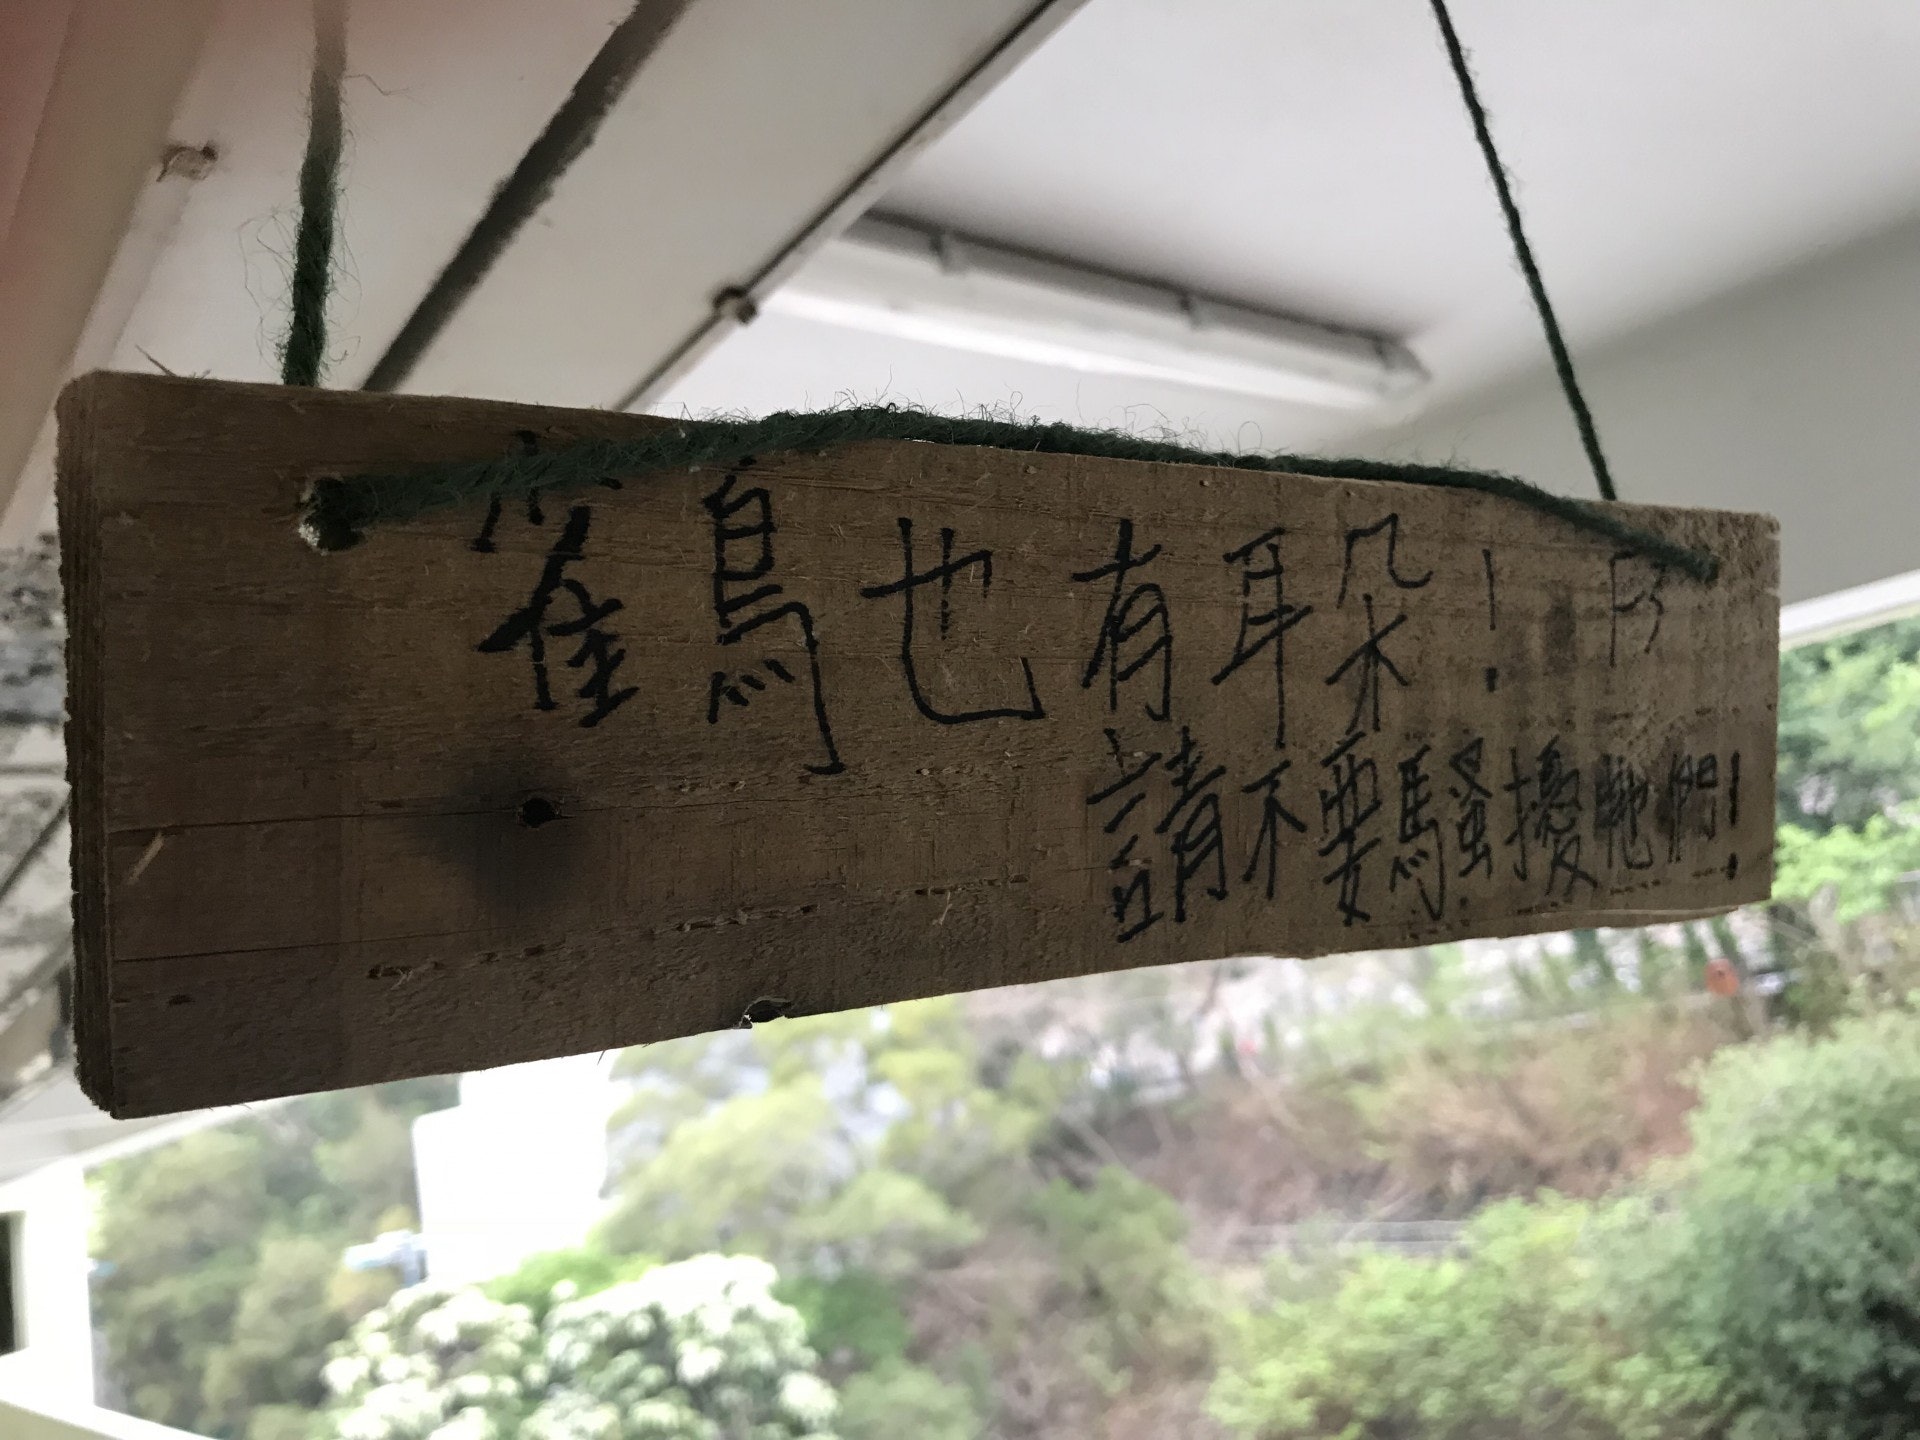 雀鳥也有耳朵!
請不要騷擾牠們!